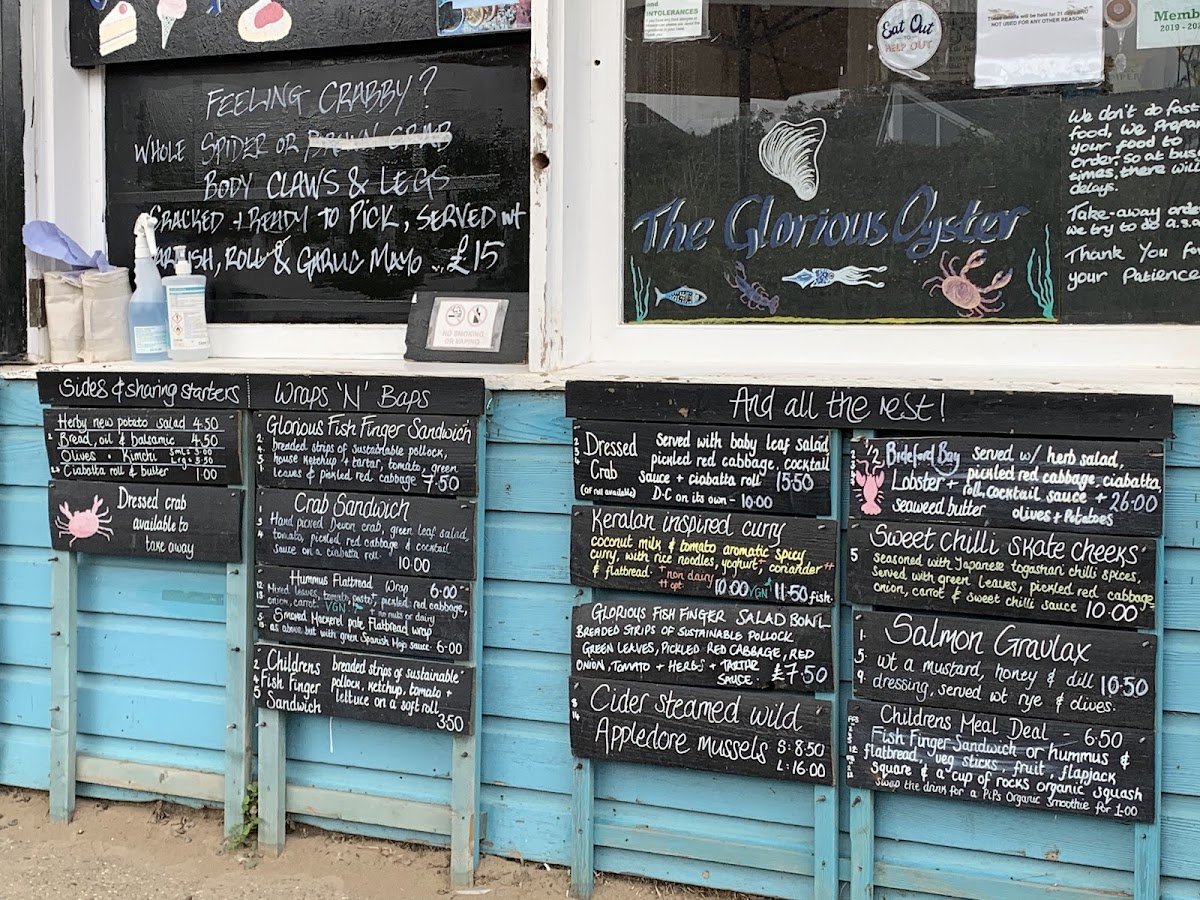 FEELING CRABBY?
WHOLE SPIDER OR BROWN CRAB
BODY CLAWS & LEGS
CRACKED + READY TO PICK, SERVED wt
ROLL & GARLIC MAYO .. £15
NO SMOKING
OR VAPING
INTOLERANCES
Eat Out
TO
HELP OUT
NOT USED FOR ANY OTHER REASON.
2019 - 20
The Glorious Oyster
We don't do fast
food, we prepare
your food to
order, so at busy
times, there will
delays.
Take-away orde
we try to do a.s.a
Thank You fo
your Patience
Sides & sharing starters
Herby new potato salad 4.50
Bread, oil & balsamic 4.50
Olives • Kimchi Sml= 3.00
Lrg= 3.50
Ciabatta roll & butter 1.00
Dressed crab
available to
take away
Wraps 'N' Baps
Glorious Fish Finger Sandwich
breaded strips of sustainable pollock,
house ketchup + tartar, tomato, green
leaves & pickled red cabbage 7.50
Crab Sandwich
Hand picked Devon crab, green leaf salad,
tomato, pickled red cabbage & cocktail
sauce on a ciabatta roll.
10.00
Hummus Flatbread Wrap 6.00
Mixed leaves, tomato, pesto*, pickled red cabbage,
onion, carrot. VGN * no nuts or dairy
Smoked Mackerel pate Flatbread wrap
as above but with green Spanish Mojo sauce 6.00
Childrens Fish Finger Sandwich
breaded strips of sustainable
pollock, ketchup, tomato +
lettuce on a soft roll.
3.50
And all the rest!
Dressed Crab
(or not available)
served with baby leaf salad
pickled red cabbage, cocktail
sauce + ciabatta roll 15.50
D.C on its own - 10.00
Keralan inspired curry
coconut milk & tomato aromatic spicy
curry, with rice noodles, yoghurt, coriander
& flatbread. non dairy
opt. 10.00 VGN 11.50 fish.
GLORIOUS FISH FINGER SALAD BOWL
BREADED STRIPS OF SUSTAINABLE POLLOCK
GREEN LEAVES, PICKLED RED CABBAGE, RED
ONION, TOMATO + HERBS + TARTRE
SAUCE. £7.50
Cider steamed wild
Appledore mussels S: 8.50
L: 16.00
1/2 Bideford Bay
Lobster +
seaweed butter
served w/ herb salad,
pickled red cabbage, ciabatta
roll, cocktail sauce + 26.00
olives + Potatoes
Sweet chilli skate cheeks
seasoned with Japanese togarashi chilli spices,
served with green leaves, pickled red cabbage
onion, carrot & sweet chilli sauce 10.00
Salmon Gravlax
wt a mustard, honey & dill 10.50
dressing, served wt rye & olives.
Childrens Meal Deal - 6.50
Fish Finger Sandwich or hummus &
flatbread, veg sticks, fruit, flapjack
square & a cup of rocks organic squash
Swap the drink for a PiPs Organic Smoothie for 1.00